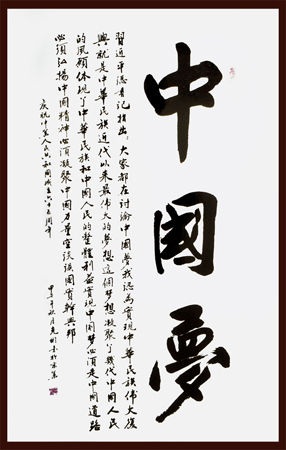 中國夢
習近平总書记指出大家都在討論中國夢我認為實現中華民族偉大復
興就是中華民族近代以来最偉大的夢想這個夢想凝聚了幾代中國人民
的夙願体現了中華民族和中國人民的整體利益實現中國梦必須走中國道路
必須弘揚中國精神必須凝聚中國力量空談误國實幹興邦
庆祝中華人民共和國成立六十五周年
甲午年秋月